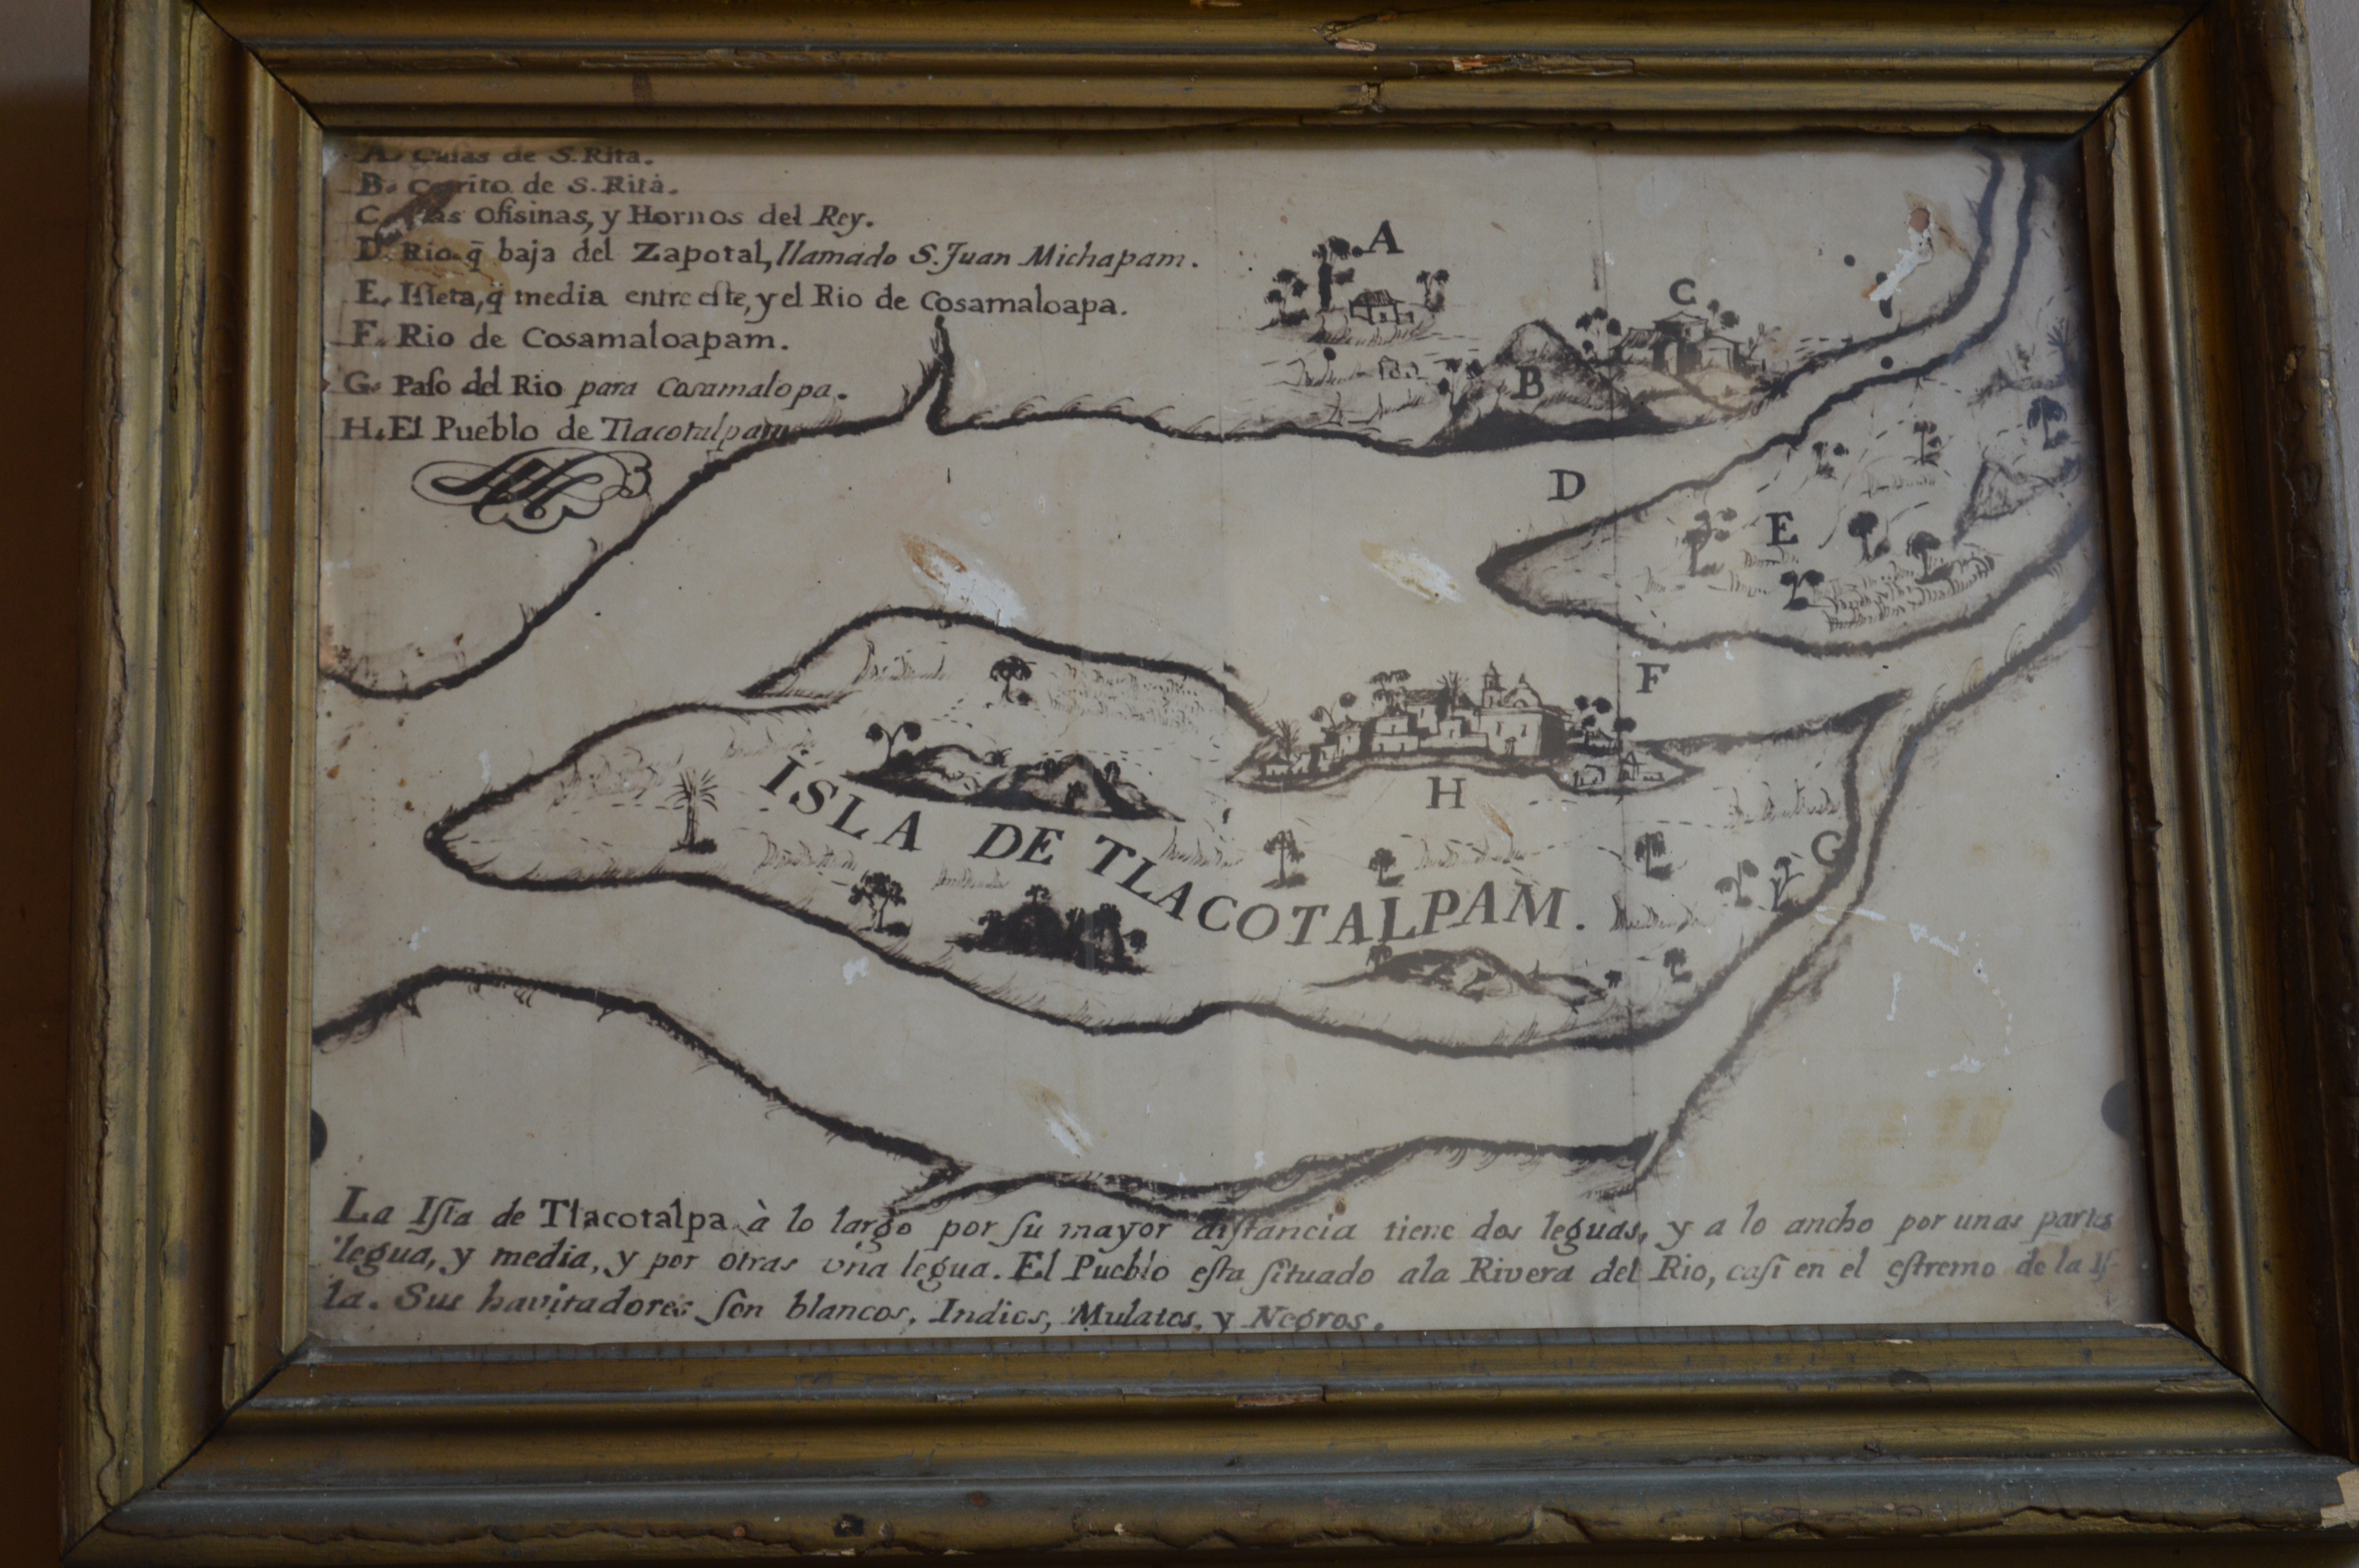 A. Casas de S. Rita.
B. Cerrito de S. Rita.
C. Ofisinas, y Hornos del Rey.
D. Rio q̄ baja del Zapotal, llamado S. Juan Michapam.
E. Iſleta, q̄ media entre eſte, y el Rio de Cosamaloapa.
F. Rio de Cosamaloapam.
G. Paſo del Rio para Cosamalopa.
H. El Pueblo de Tlacotalpam
A
C
B
D
E
F
H
G
ISLA DE TLACOTALPAM.
La Iſla de Tlacotalpa à lo largo por ſu mayor diſtancia tiene dos leguas, y a lo ancho por unas partes
legua, y media, y por otras vna legua. El Pueblo eſta ſituado ala Rivera del Rio, caſi en el eſtremo de la Iſ-
la. Sus havitadores ſon blancos, Indios, Mulatos, y Negros.